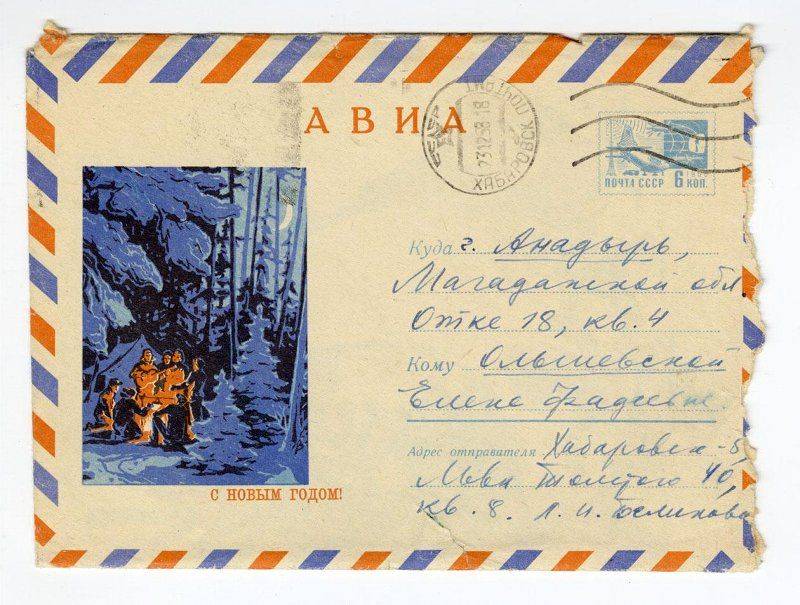 АВИА
ХАБАРОВСК ПОЧТАМТ
231268-18
ПОЧТА СССР 6 КОП.
Куда г. Анадырь,
Магаданской обл
Отке 18, кв. 4
Кому Ольшевской
Елене Фадеевне.
Адрес отправителя Хабаровск-
Льва Толстого 40,
кв. 8. Л. И.
С НОВЫМ ГОДОМ!